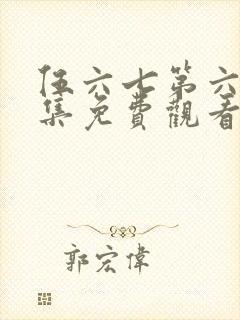 伍六七第六
集免費觀看
郭宏偉